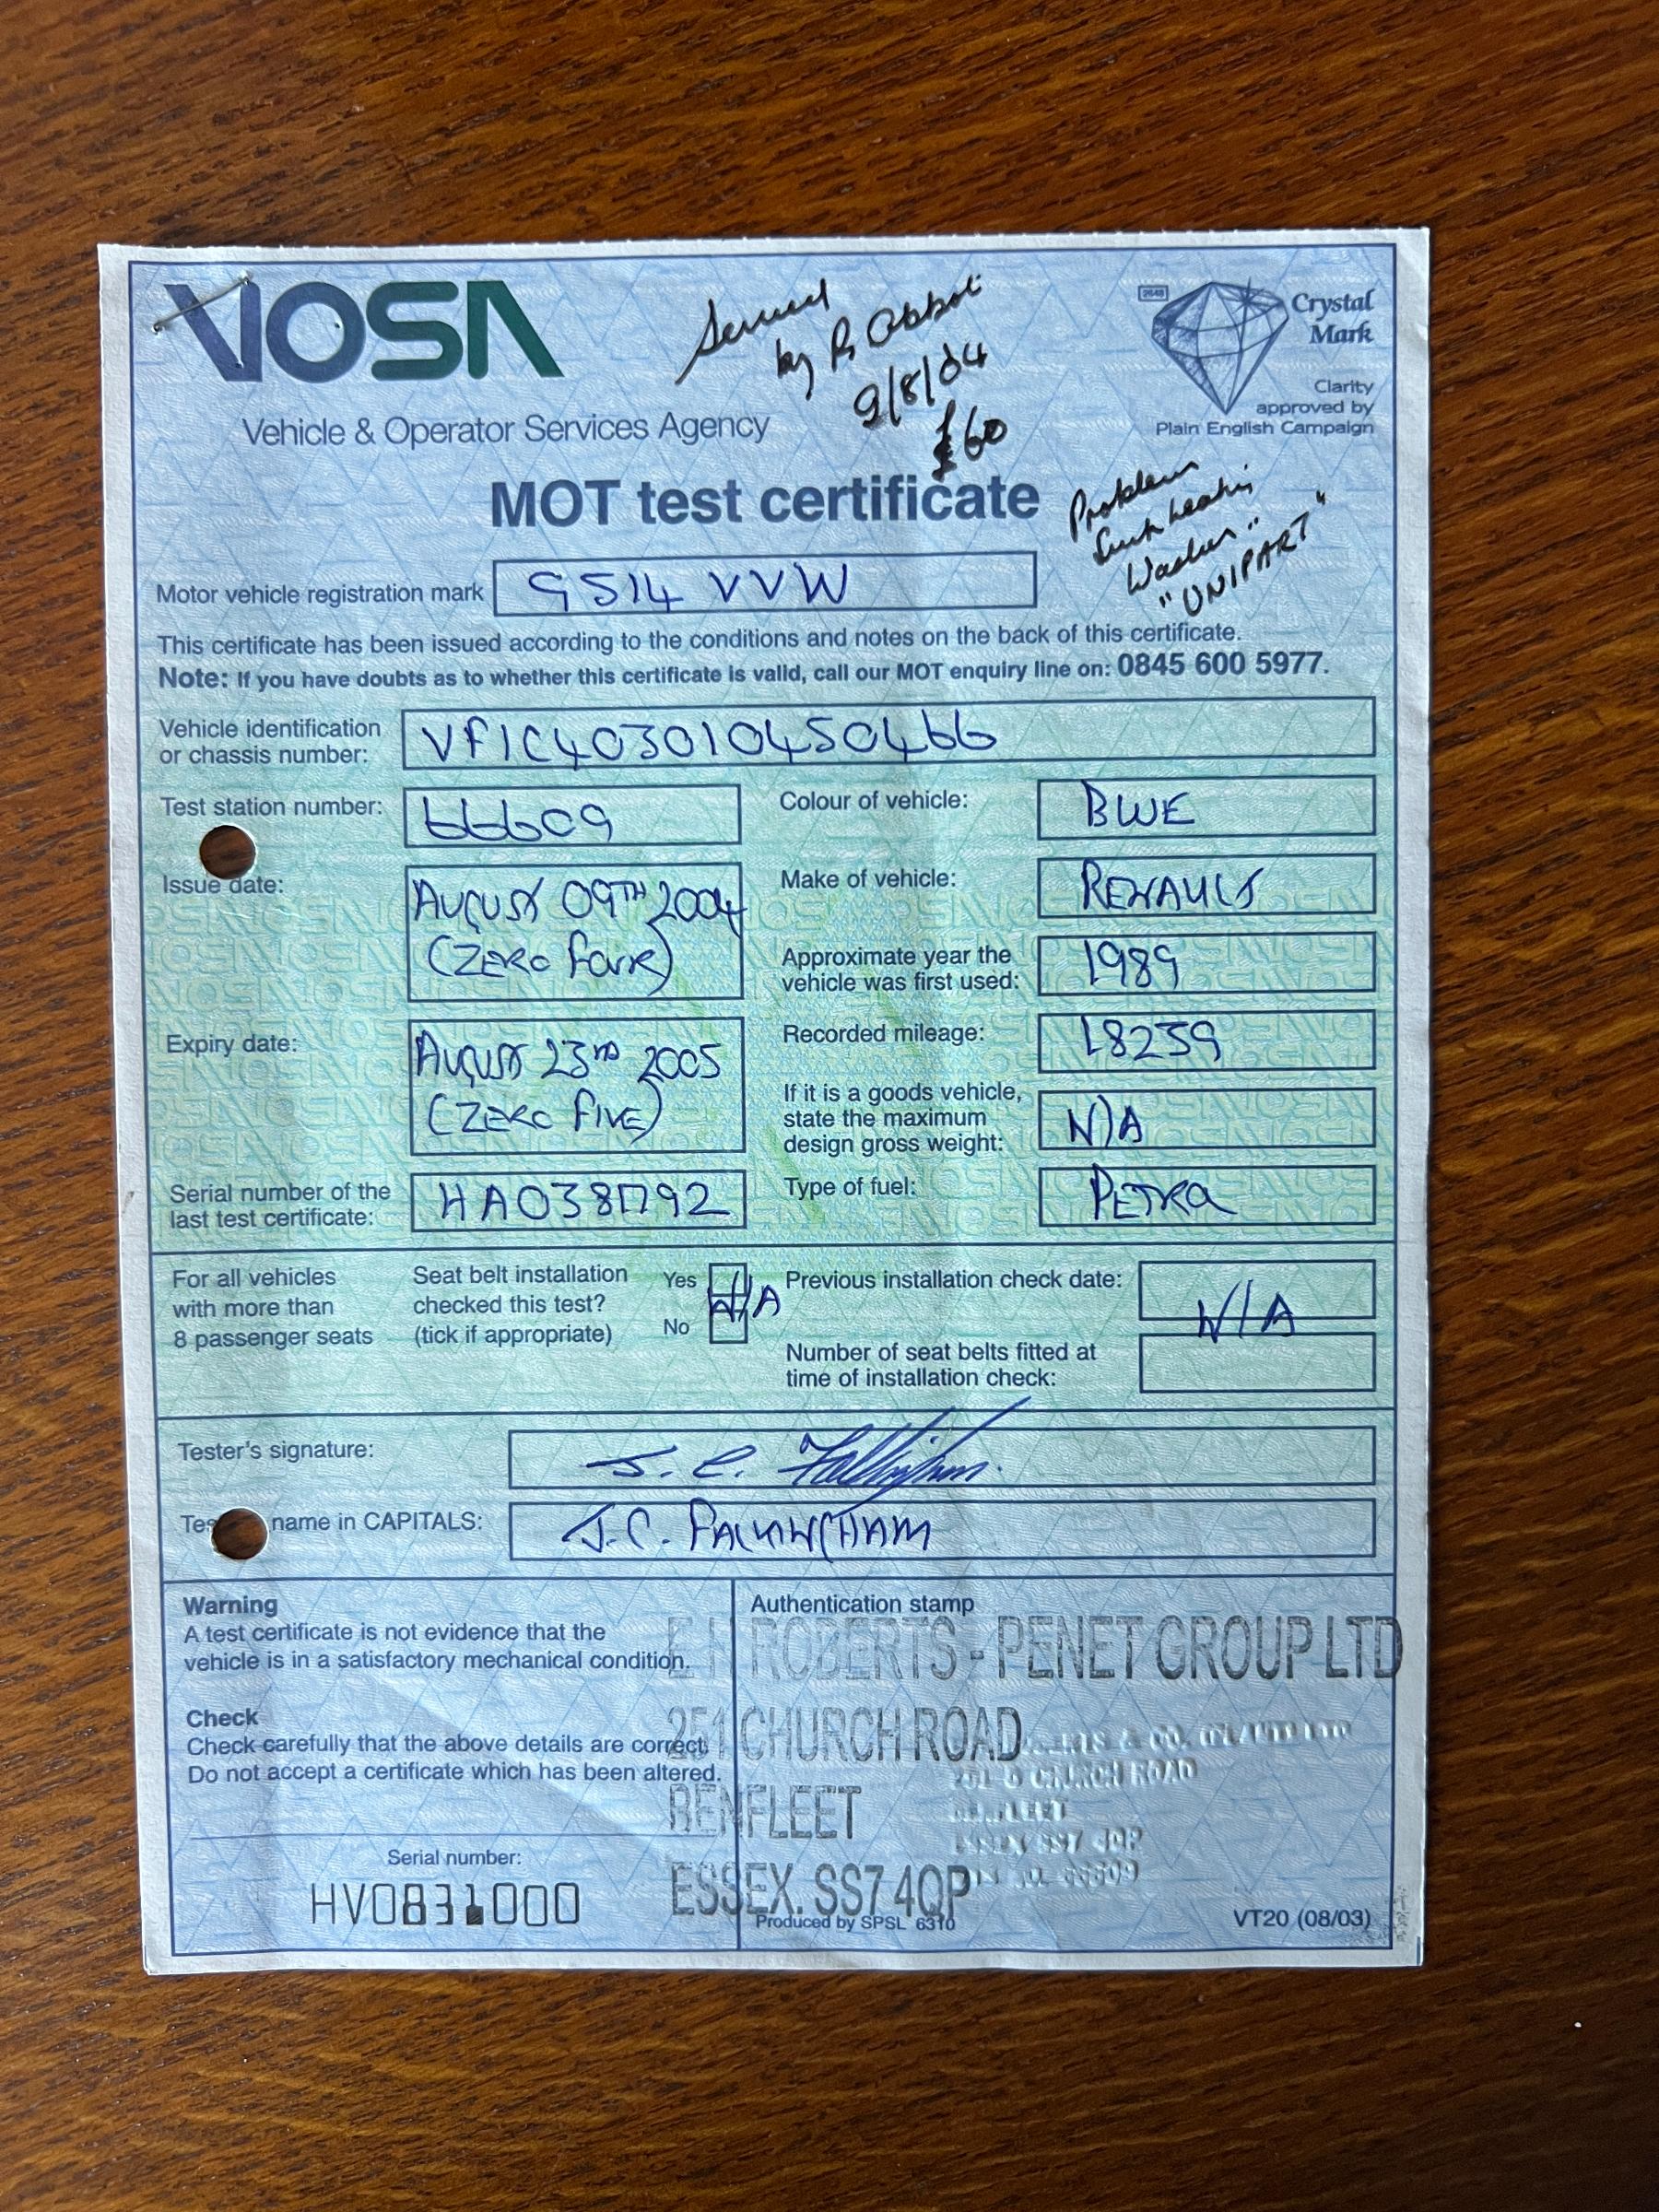 VOSA
Vehicle & Operator Services Agency
by R Abbot
9/8/04
£60
2648
Crystal
Mark
Clarity
approved by
Plain English Campaign
MOT test certificate
Problem
"UNIPART"
Motor vehicle registration mark G514 VVW
This certificate has been issued according to the conditions and notes on the back of this certificate.
Note: If you have doubts as to whether this certificate is valid, call our MOT enquiry line on: 0845 600 5977.
Vehicle identification
or chassis number: VF1C403010450466
Test station number: 66609
Colour of vehicle: BLUE
Issue date: AUGUST 09TH 2004
(ZERO FOUR)
Make of vehicle: RENAULT
Approximate year the
vehicle was first used: 1989
Expiry date: AUGUST 23RD 2005
(ZERO FIVE)
Recorded mileage: 18259
If it is a goods vehicle,
state the maximum
design gross weight: N/A
Serial number of the
last test certificate:
Type of fuel: PETROL
For all vehicles
with more than
8 passenger seats
Seat belt installation
checked this test?
(tick if appropriate)
Yes
No
N/A
Previous installation check date:
N/A
Number of seat belts fitted at
time of installation check:
Tester's signature: J. C.
name in CAPITALS: J.C.
Warning
A test certificate is not evidence that the
vehicle is in a satisfactory mechanical condition.
Check
Check carefully that the above details are correct.
Do not accept a certificate which has been altered.
Serial number:
HV0831000
Authentication stamp
ROBERTS - PENET GROUP LTD
251 CHURCH ROAD
BENFLEET
ESSEX. SS7 4QP
& CO.
CHURCH ROAD
BENFLEET
ESSEX SS7 4QP
66609
Produced by SPSL 6310
VT20 (08/03)